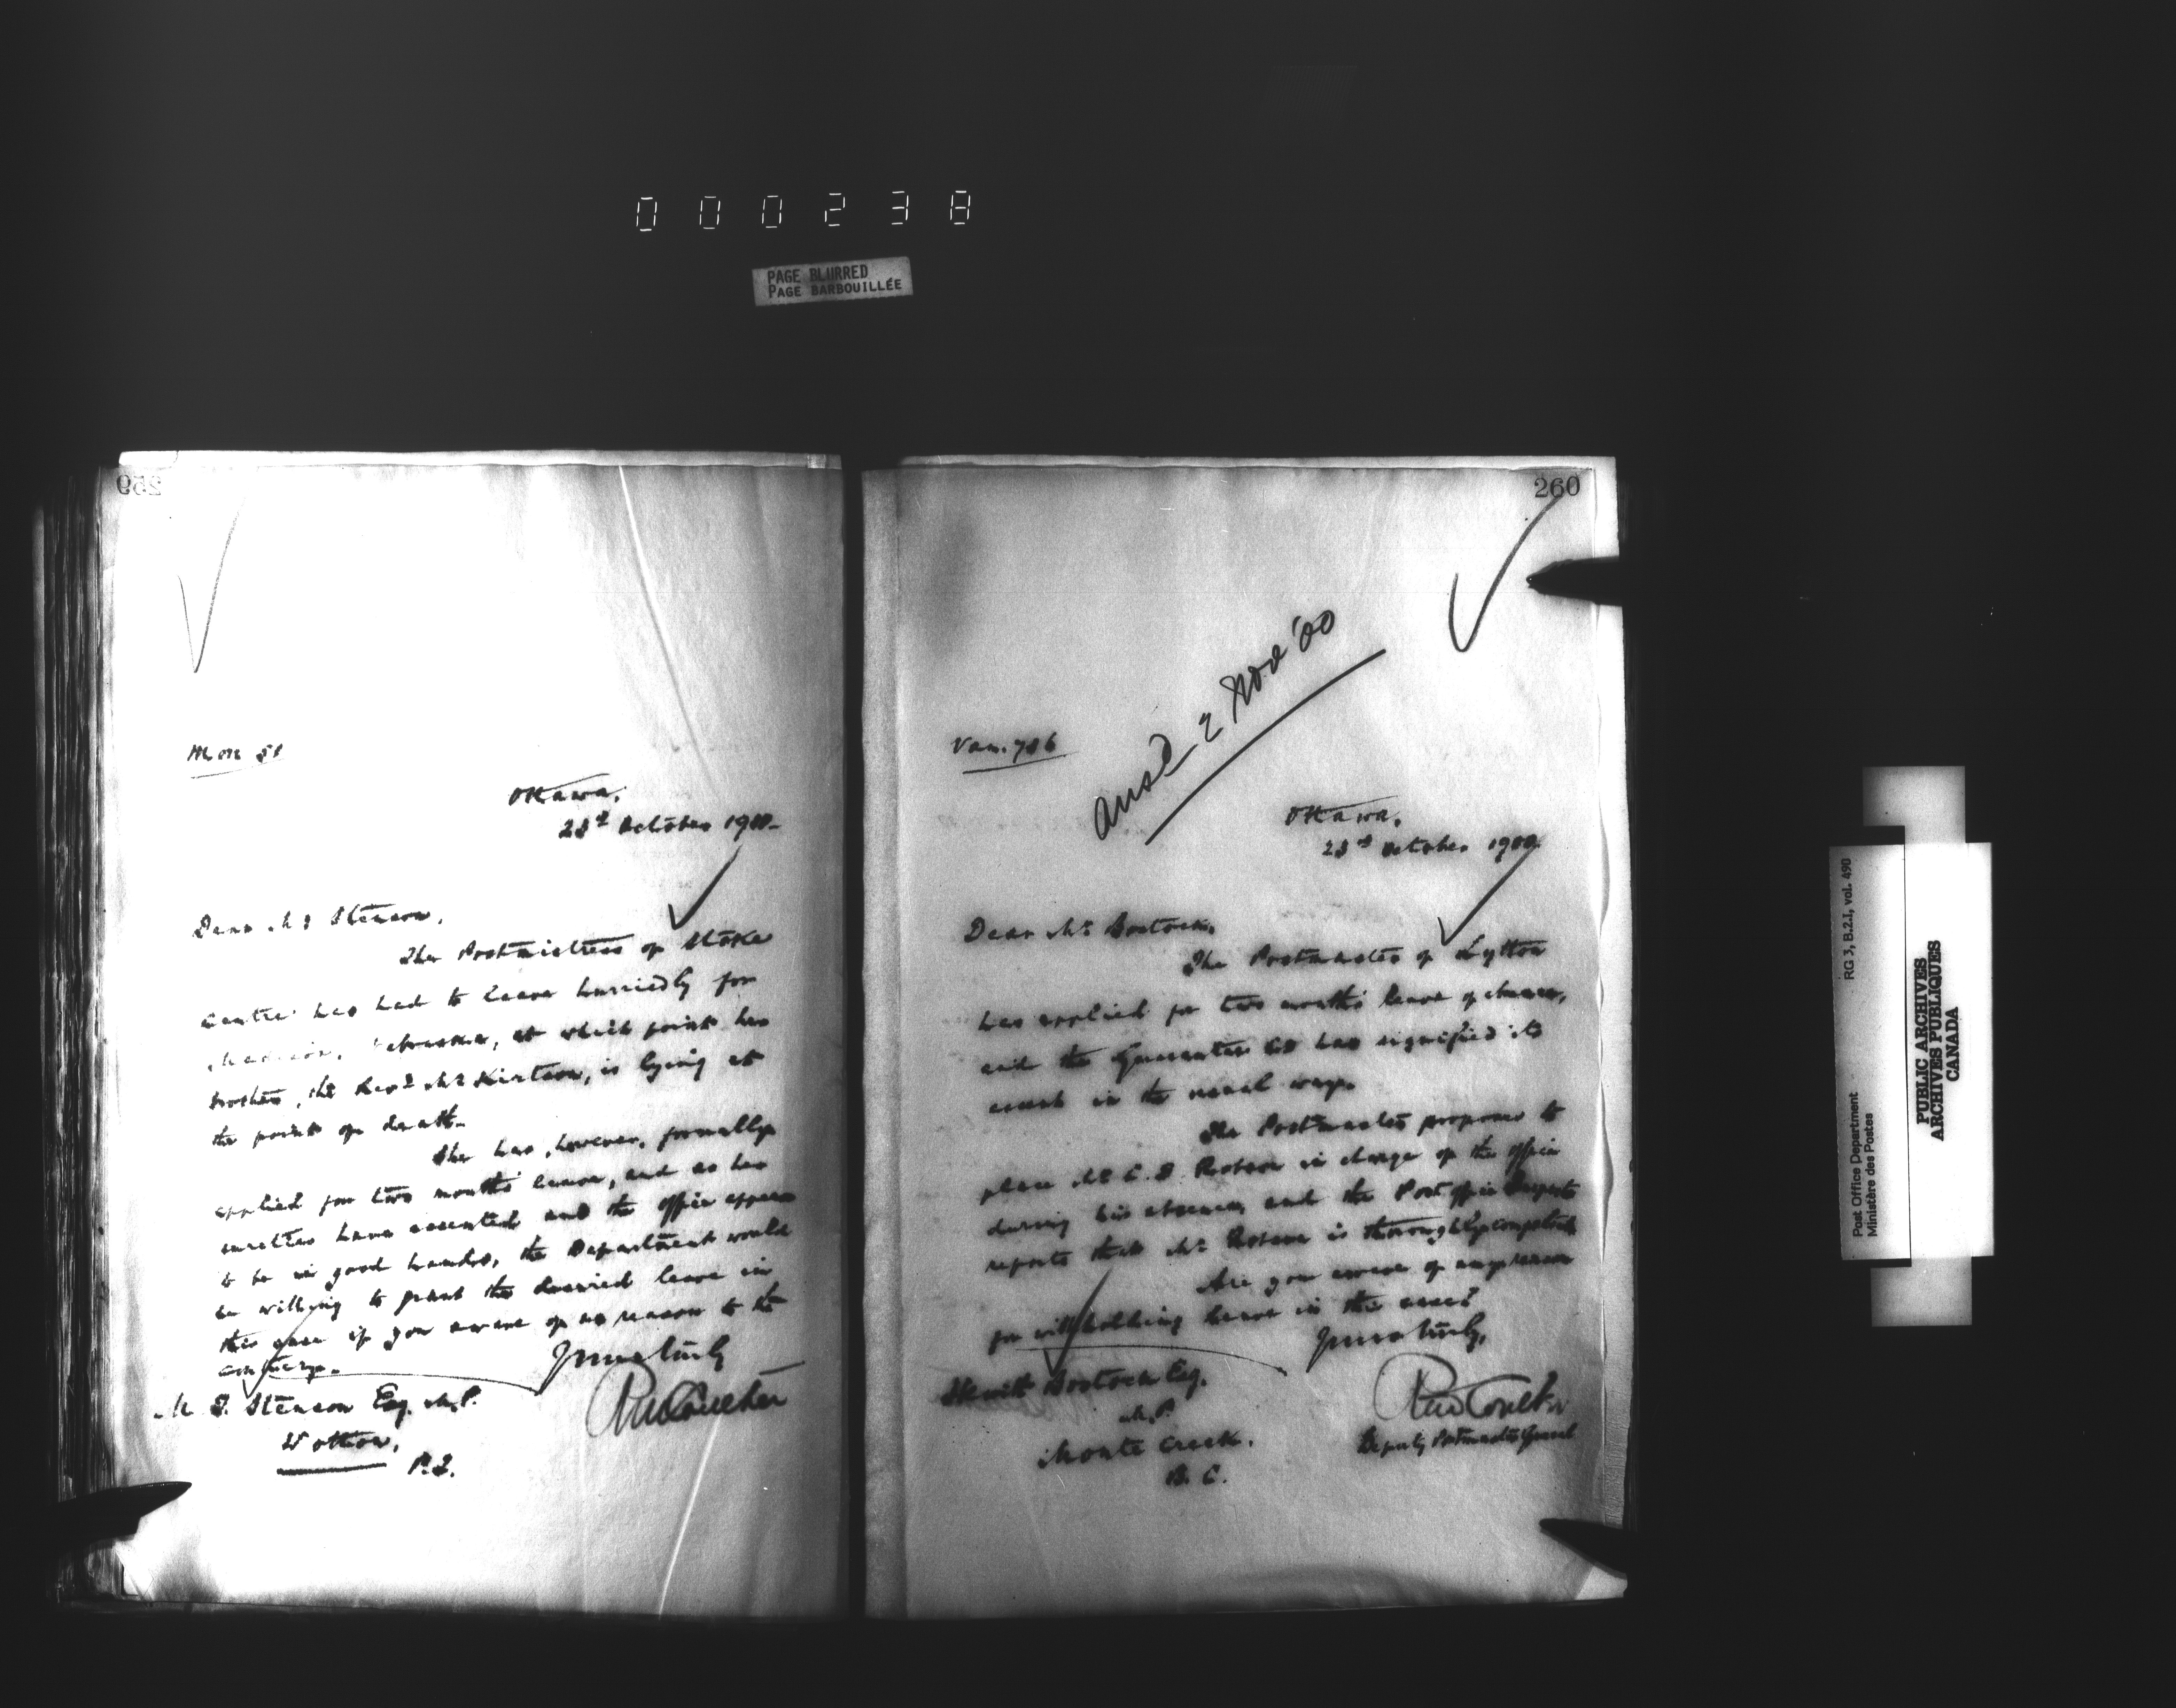 000238
PAGE BLURRED
PAGE BARBOUILLÉE
259
Mon 51
Ottawa,
23rd October 1900.
Dear Mr Stenson,
The Postmistress of Stoke
Centre has had to leave hurriedly for
Nebraska, at which point her
brother, the Revd Mr Kirtson, is lying at
the point of death.
She has, however, formally
applied for two months' leave, and as her
sureties have assented and the office appears
to be in good hands, the Department would
be willing to grant the desired leave in
this case if you aware of no reason to the
contrary.
Yours truly
RMCoulter
M. T. Stenson Esq. M.P.
Wotton,
P.Q.
260
Ansd 2 Nov '00
Van. 786
Ottawa,
23rd October 1900.
Dear Mr Bostock,
The Postmaster of Lytton
has applied for two months' leave of absence,
and the Guarantee Co has signified its
assent in the usual way.
The Postmaster proposes to
place Mr C. B. in charge of the office
during his absence, and the Post Office Inspector
reports that Mr is thoroughly competent.
Are you aware of any reason
for withholding leave in this case?
Yours truly,
RMCoulter
Deputy Postmaster General
Hewitt Bostock Esq.
M.P.
Monte Creek.
B. C.
RG 3, B.2.I, vol. 490
Post Office Department
Ministère des Postes
PUBLIC ARCHIVES
ARCHIVES PUBLIQUES
CANADA